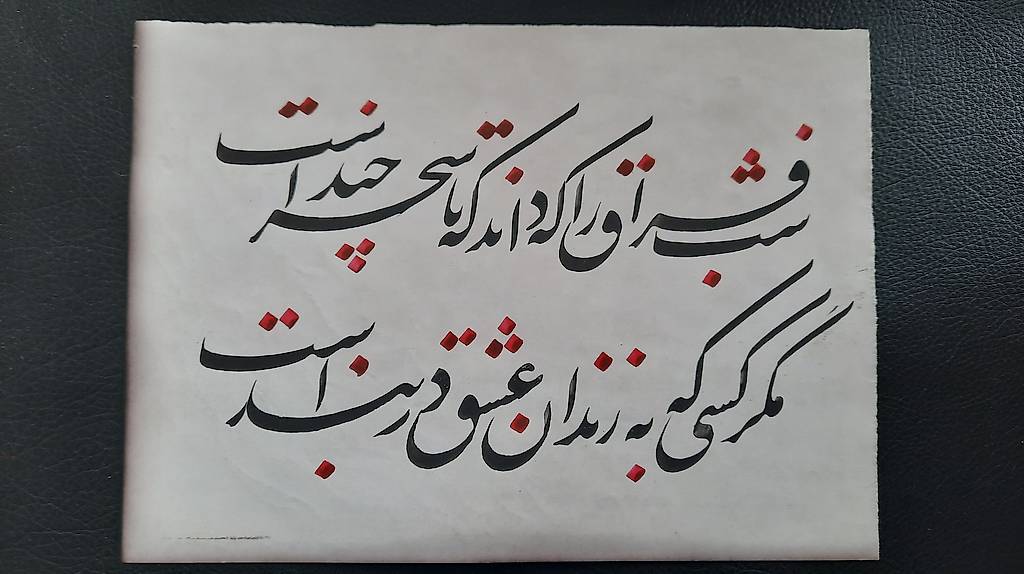 شب فراق که داند که تا سحر چند است
مگر کسی که به زندان عشق دربند است